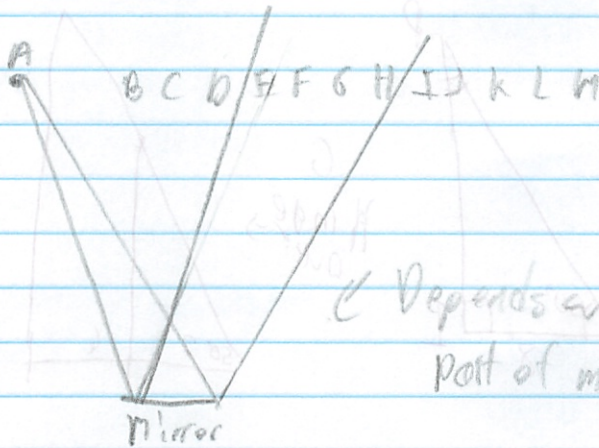 A
B C D E F G H I J K L M
Depends
part of m
Mirror